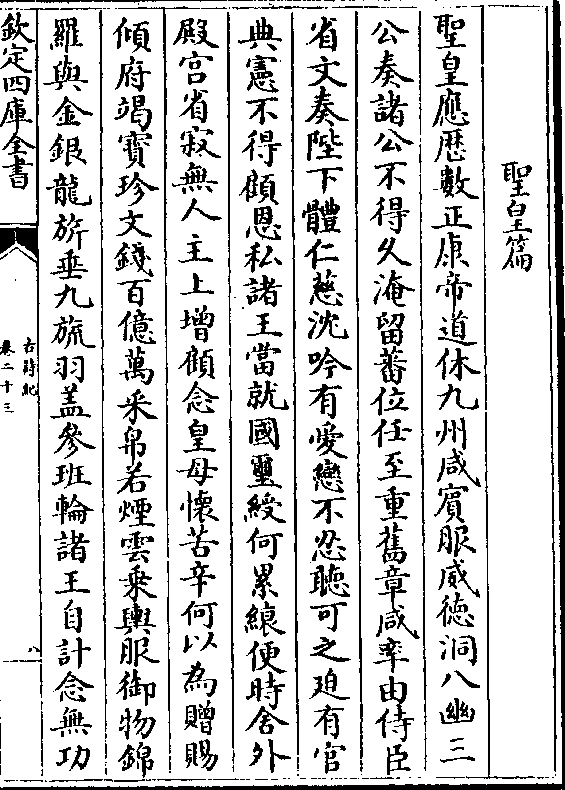 聖皇篇
聖皇應歴數正康帝道休九州咸賓服威徳洞八幽三
公奏諸公不得久淹留蕃位任至重舊章咸率由侍臣
省文奏陛下體仁慈沈吟有愛戀不忍聽可之迫有官
典憲不得顧恩私諸王當就國璽綬何累縗便時舍外
殿宫省寂無人主上增顧念皇母懷苦辛何以為贈賜
傾府竭寳珍文錢百億萬采帛若煙雲乘輿服御物錦
羅與金銀龍旂垂九旒羽盖參班輪諸王自計念無功
欽定四庫全書
古詩紀
卷二十三
八